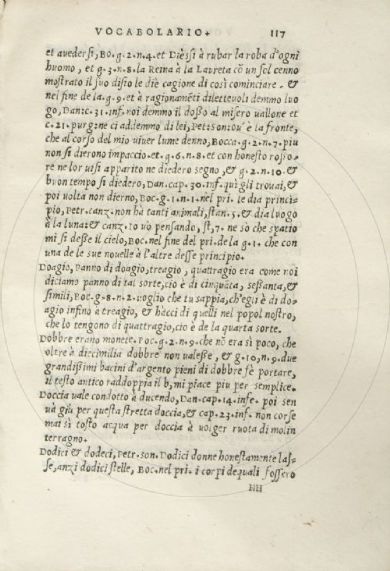 VOCABOLARIO. 117
et avedersi, BO. g. 2. n. 4. et Dièssi à rubar la roba d'ogni
huomo, et g. 3. n. 8. la Reina à la Laureta cõ un sol cenno
mostrato il suo disio le diè cagione di così cominciare. &
nel fine de la. g. 9. et à ragionamẽti dilettevoli demmo luo
go, Danic. 31. inf. noi demmo il dosso al misero vallone et
c. 21. purg. ne ci addemmo di lei, Pet. son. è la fronte,
che al corso del mio viuer lume denno, Bocca. g. 2. n. 7. piu
non si dierono impaccio. et g. 6. n. 8. et con honesto rosso-
re ne lor uisi apparito ne diedero segno, & g. 2. n. 10. &
buon tempo si diedero, Dan. cap. 30. inf. quì gli trouai, &
poi uolta non dierno, Boc. g. 1. n. 1. nel pri. le dia princi-
pio, Petr. canz. non ha tanti animali, stan. 5. & dia luogo
à la luna: & canz. 10 uò pensando, st, 7. ne sò che spatio
mi si desse il cielo, Boc. nel fine del pri. de la g. 1. che con
una de le sue nouelle à l'altre desse principio.
Doagio, Panno di doagio, treagio, quattragio era come noi
diciamo panno di tal sorte, cio è di cinquãta, sessanta, &
simili, Boc. g. 8. n. 2. uoglio che tu sappia, ch'egli è di do-
agio infino à treagio, & hacci di quelli nel popol nostro,
che lo tengono di quattragio, cio è de la quarta sorte.
Dobbre erano monete. Boc. g. 2. n. 9. che nõ era sì poco, che
oltre à diecimilia dobbre non ualesse, & g. 10. n. 9. due
grandissimi bacini d'argento pieni di dobbre fe portare,
il testo antico raddoppia il b, mi piace piu per semplice.
Doccia uale condotto à ducendo, Dan. cap. 14. infe. poi sen
uà giù per questa stretta doccia, & cap. 23. inf. non corse
mai sì tosto acqua per doccia à uolger ruota di molin
terragno.
Dodici & dodeci, Petr. son. Dodici donne honestamente las-
se, anzi dodici stelle, Boc. nel pri. i corpi de quali fossero
HH